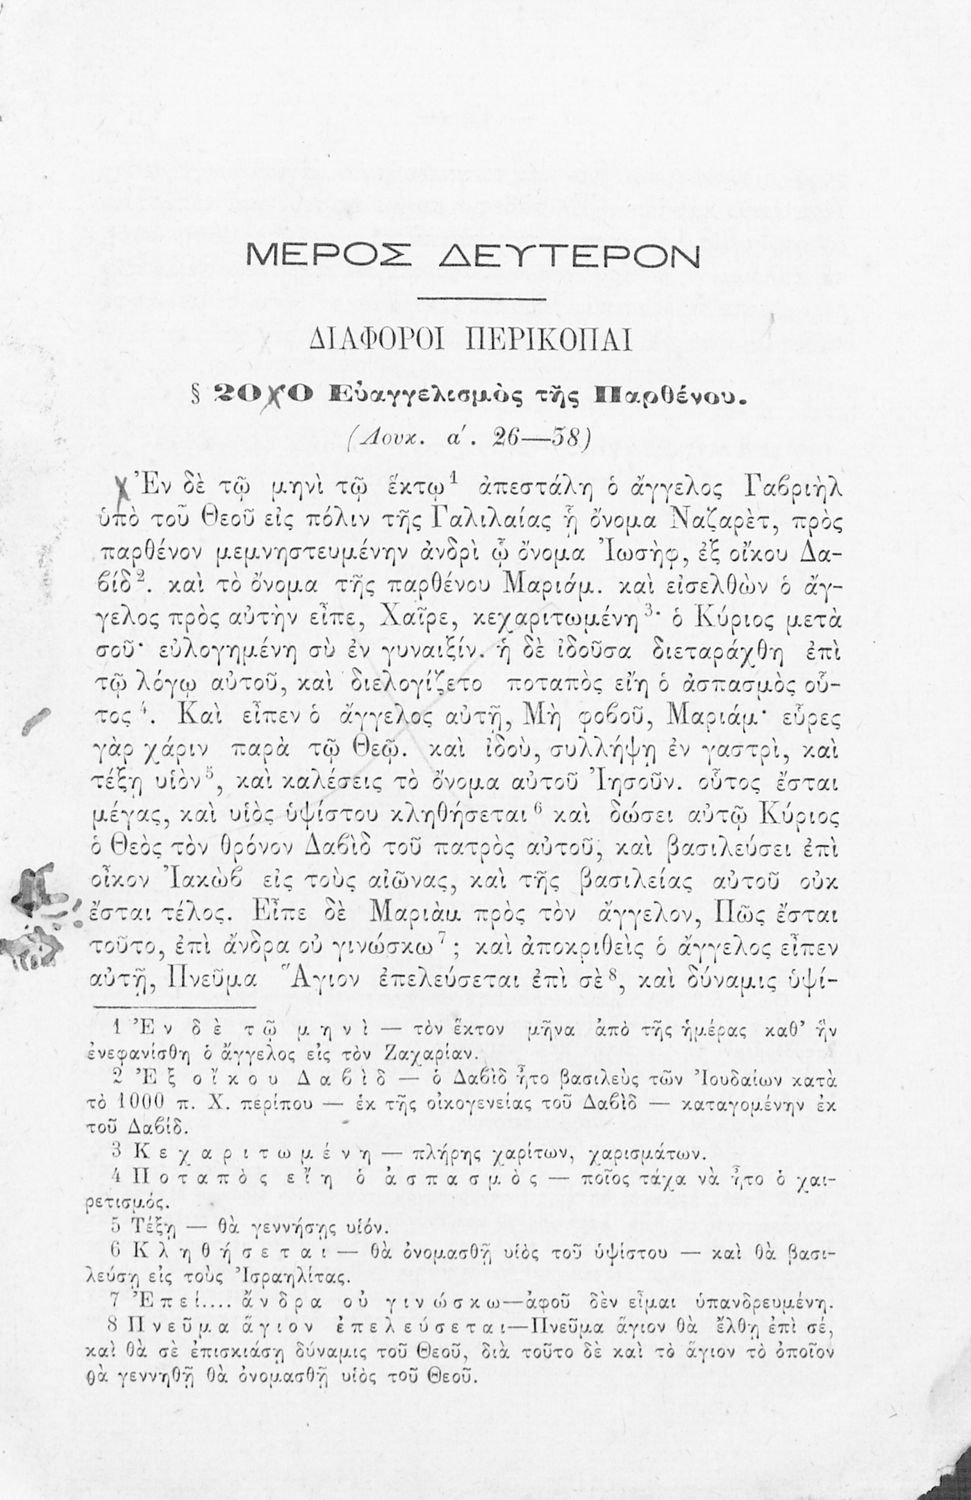 ΜΕΡΟΣ ΔΕΥΤΕΡΟΝ
ΔΙΑΦΟΡΟΙ ΠΕΡΙΚΟΠΑΙ
§ 20 Ο Εὐαγγελισμὸς τῆς Παρθένου.
(Λουκ. α΄. 26—38)
Ἐν δὲ τῷ μηνὶ τῷ ἕκτῳ¹ ἀπεστάλη ὁ ἄγγελος Γαβριὴλ
ὑπὸ τοῦ Θεοῦ εἰς πόλιν τῆς Γαλιλαίας ᾗ ὄνομα Ναζαρὲτ, πρὸς
παρθένον μεμνηστευμένην ἀνδρὶ ᾧ ὄνομα Ἰωσὴφ, ἐξ οἴκου Δα-
βίδ². καὶ τὸ ὄνομα τῆς παρθένου Μαριάμ. καὶ εἰσελθὼν ὁ ἄγ-
γελος πρὸς αὐτὴν εἶπε, Χαῖρε, κεχαριτωμένη³· ὁ Κύριος μετὰ
σοῦ· εὐλογημένη σὺ ἐν γυναιξίν. ἡ δὲ ἰδοῦσα διεταράχθη ἐπὶ
τῷ λόγῳ αὐτοῦ, καὶ διελογίζετο ποταπὸς εἴη ὁ ἀσπασμὸς οὗ-
τος⁴. Καὶ εἶπεν ὁ ἄγγελος αὐτῇ, Μὴ φοβοῦ, Μαριάμ· εὗρες
γὰρ χάριν παρὰ τῷ Θεῷ. καὶ ἰδοὺ, συλλήψῃ ἐν γαστρὶ, καὶ
τέξῃ υἱὸν⁵, καὶ καλέσεις τὸ ὄνομα αὐτοῦ Ἰησοῦν. οὗτος ἔσται
μέγας, καὶ υἱὸς ὑψίστου κληθήσεται⁶ καὶ δώσει αὐτῷ Κύριος
ὁ Θεὸς τὸν θρόνον Δαβὶδ τοῦ πατρὸς αὐτοῦ, καὶ βασιλεύσει ἐπὶ
οἶκον Ἰακὼβ εἰς τοὺς αἰῶνας, καὶ τῆς βασιλείας αὐτοῦ οὐκ
ἔσται τέλος. Εἶπε δὲ Μαριὰμ πρὸς τὸν ἄγγελον, Πῶς ἔσται
τοῦτο, ἐπὶ ἄνδρα οὐ γινώσκω⁷; καὶ ἀποκριθεὶς ὁ ἄγγελος εἶπεν
αὐτῇ, Πνεῦμα Ἅγιον ἐπελεύσεται ἐπὶ σὲ⁸, καὶ δύναμις ὑψί-
1 Ἐν δὲ τῷ μηνὶ — τὸν ἕκτον μῆνα ἀπὸ τῆς ἡμέρας καθ' ἣν
ἐνεφανίσθη ὁ ἄγγελος εἰς τὸν Ζαχαρίαν.
2 Ἐξ οἴκου Δαβὶδ — ὁ Δαβὶδ ἦτο βασιλεὺς τῶν Ἰουδαίων κατὰ
τὸ 1000 π. Χ. περίπου — ἐκ τῆς οἰκογενείας τοῦ Δαβὶδ — καταγομένην ἐκ
τοῦ Δαβίδ.
3 Κεχαριτωμένη — πλήρης χαρίτων, χαρισμάτων.
4 Ποταπὸς εἴη ὁ ἀσπασμὸς — ποῖος τάχα νὰ ἦτο ὁ χαι-
ρετισμός.
5 Τέξῃ — θὰ γεννήσῃς υἱόν.
6 Κληθήσεται — θὰ ὀνομασθῇ υἱὸς τοῦ ὑψίστου — καὶ θὰ βασι-
λεύσῃ εἰς τοὺς Ἰσραηλίτας.
7 Ἐπεί.... ἄνδρα οὐ γινώσκω—ἀφοῦ δὲν εἶμαι ὑπανδρευμένη.
8 Πνεῦμα ἅγιον ἐπελεύσεται—Πνεῦμα ἅγιον θὰ ἔλθῃ ἐπὶ σέ,
καὶ θὰ σὲ ἐπισκιάσῃ δύναμις τοῦ Θεοῦ, διὰ τοῦτο δὲ καὶ τὸ ἅγιον τὸ ὁποῖον
θὰ γεννηθῇ θὰ ὀνομασθῇ υἱὸς τοῦ Θεοῦ.